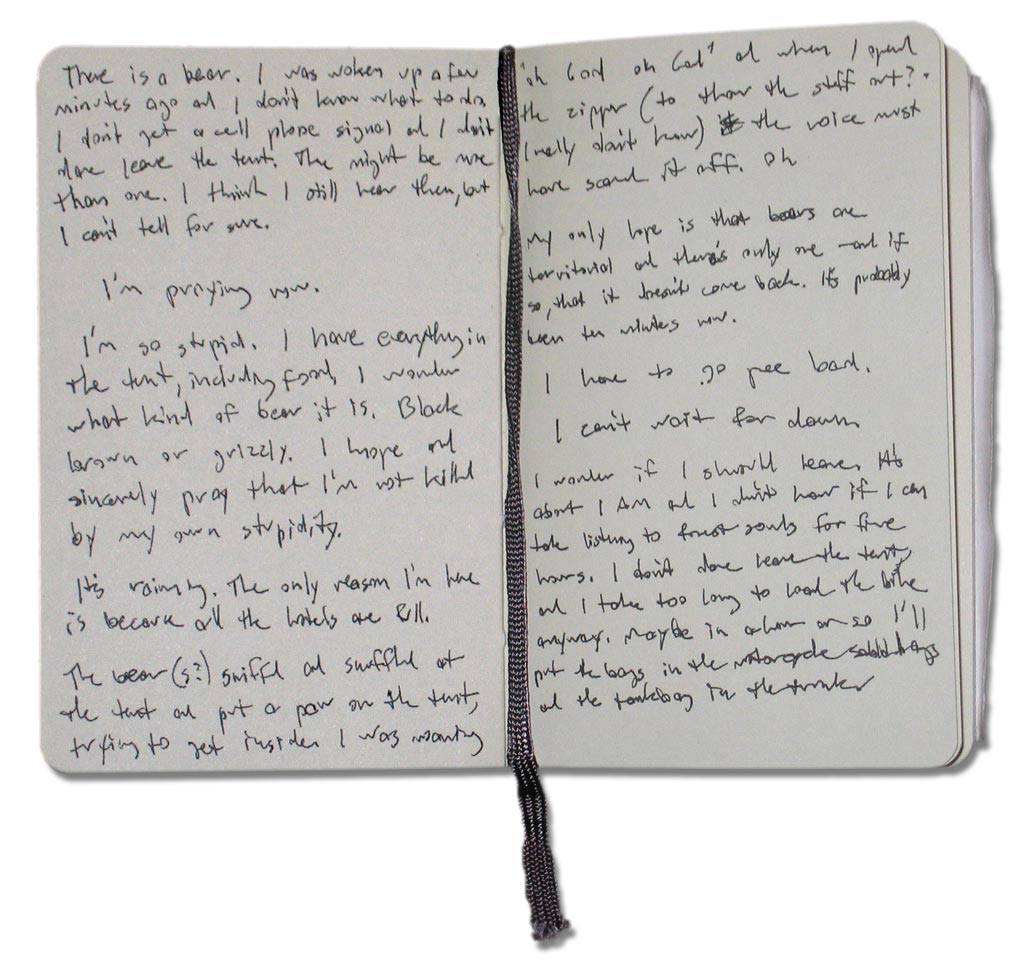 There is a bear. I was woken up a few
minutes ago and I don't know what to do.
I don't get a cell phone signal and I don't
dare leave the tent. There might be more
than one. I think I still hear them, but
I can't tell for sure.
I'm praying now.
I'm so stupid. I have everything in
the tent, including food. I wonder
what kind of bear it is. Black
brown or grizzly. I hope and
sincerely pray that I'm not killed
by my own stupidity.
It's raining. The only reason I'm here
is because all the hotels are full.
The bear(s?) sniffed and snuffled at
the tent and put a paw on the tent,
trying to get inside. I was moaning
'oh God oh God' and when I opened
the zipper (to throw the stuff out?
I really don't know) the voice must
have scared it off. Oh
My only hope is that bears are
territorial and there's only one – and if
so, that it doesn't come back. It's probably
been ten minutes now.
I have to go pee bad.
I can't wait for dawn.
I wonder if I should leave. It's
about 1 AM and I don't know if I can
take listening to forest sounds for five
hours. I don't dare leave the tent,
and I take too long to load the bike
anyway. Maybe in an hour or so I'll
put the bags in the motorcycle saddlebags
and the tankbag in the trunk